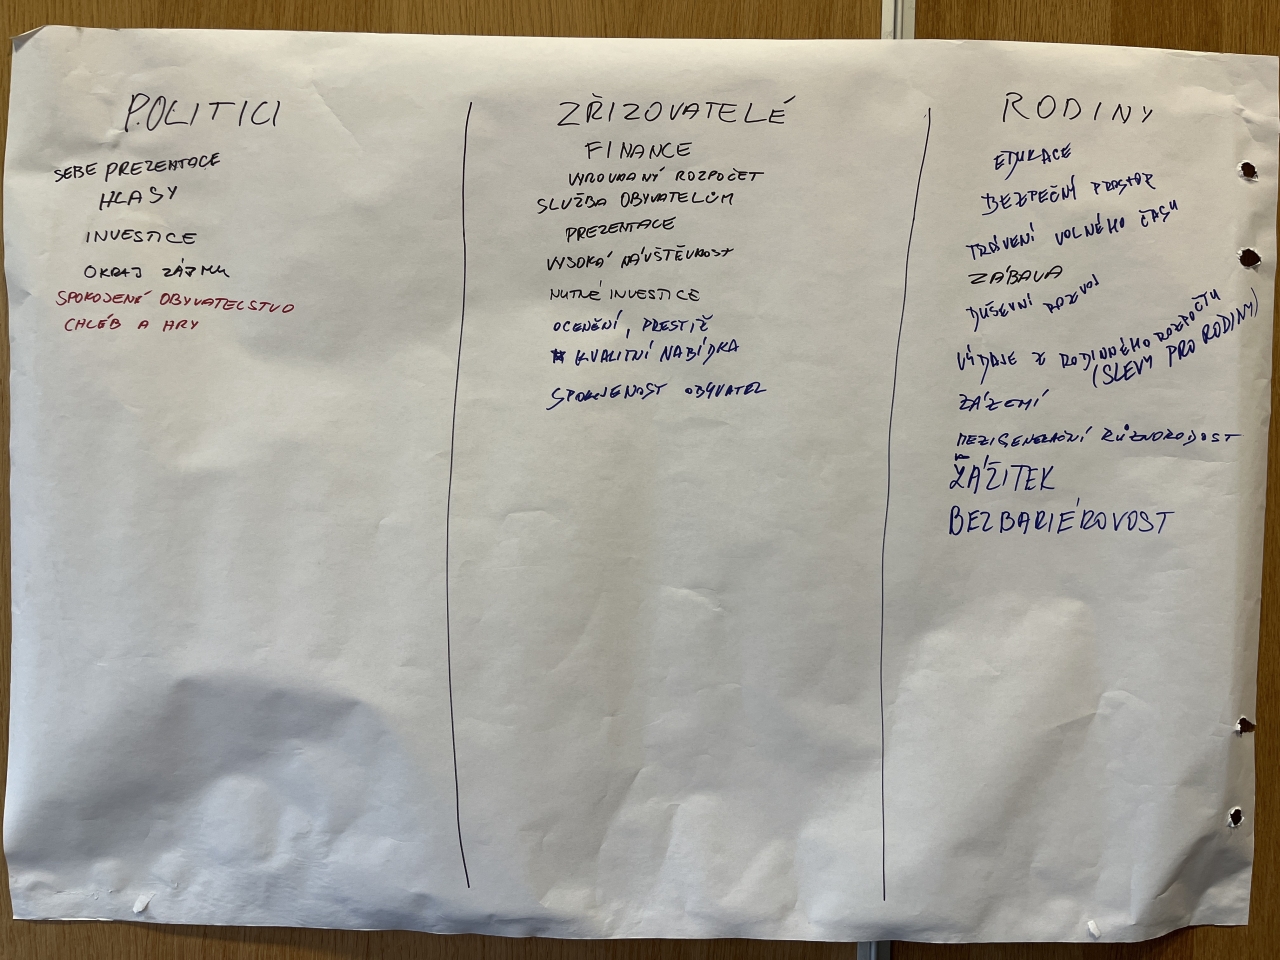 POLITICI
SEBE PREZENTACE
HLASY
INVESTICE
OKRAJ ZÁJMU
SPOKOJENÉ OBYVATELSTVO
CHLÉB A HRY
ZŘIZOVATELÉ
FINANCE
VYROVNANÝ ROZPOČET
SLUŽBA OBYVATELŮM
PREZENTACE
VYSOKÁ NÁVŠTĚVNOST
NUTNÉ INVESTICE
OCENĚNÍ, PRESTIŽ
KVALITNÍ NABÍDKA
SPOKOJENOST OBYVATEL
RODINY
EDUKACE
BEZPEČNÍ PROSTOR
TRÁVENÍ VOLNÉHO ČASU
ZÁBAVA
DUŠEVNÍ ROZVOJ
VÝDAJE Z RODINNÉHO ROZPOČTU
(SLEVY PRO RODINY)
ZÁZEMÍ
MEZIGENERAČNÍ RŮZNORODOST
ZÁŽITEK
BEZBARIÉROVOST